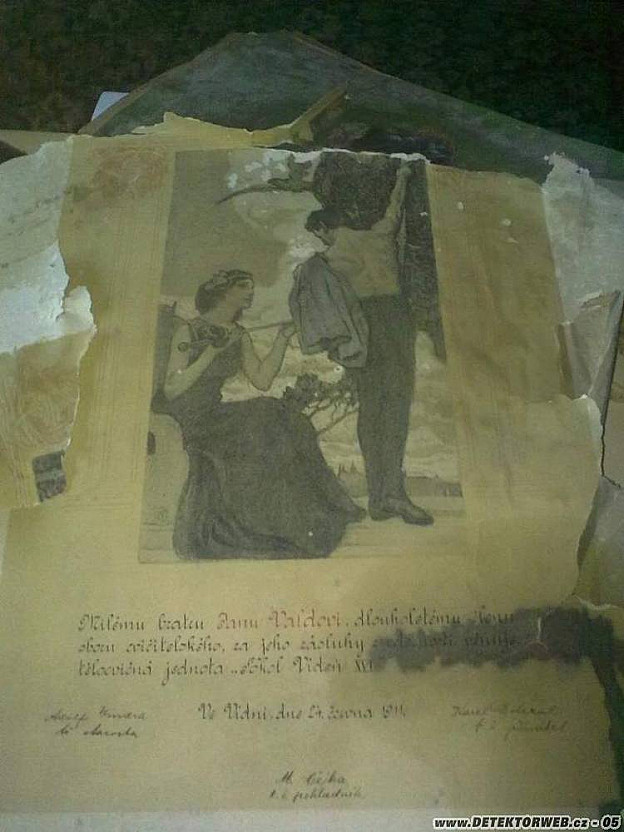 Milému bratru Janu Valdovi, dlouholetému členu
sboru cvičitelského, za jeho zásluhy věnuje
tělocvičná jednota „Sokol Vídeň XVI
Ve Vídni, dne 24. června 1911.
Karel
starosta
M. Čejka
t. č. pokladník
www.DETEKTORWEB.cz - 05